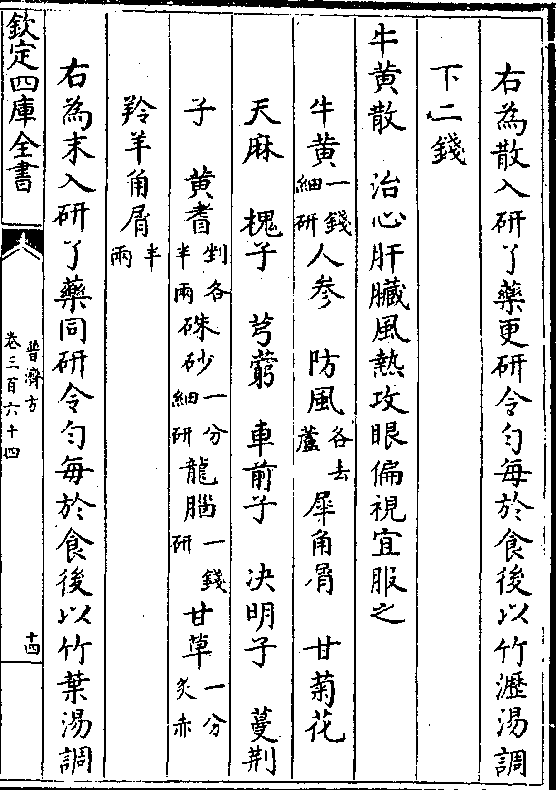 右為散入研了藥更研令勻每於食後以竹瀝湯調
下二錢
牛黄散　治心肝臟風熱攻眼偏視宜服之
牛黄一錢細研人參　防風各去蘆犀角屑　甘菊花
天麻　槐子　芎藭　車前子　决明子　蔓荆
子　黄耆剉各半兩硃砂一分細研龍腦一錢研甘草一分炙赤
羚羊角屑半兩
右為末入研了藥同研令勻每於食後以竹葉湯調
欽定四庫全書
普濟方
卷三百六十四
十四